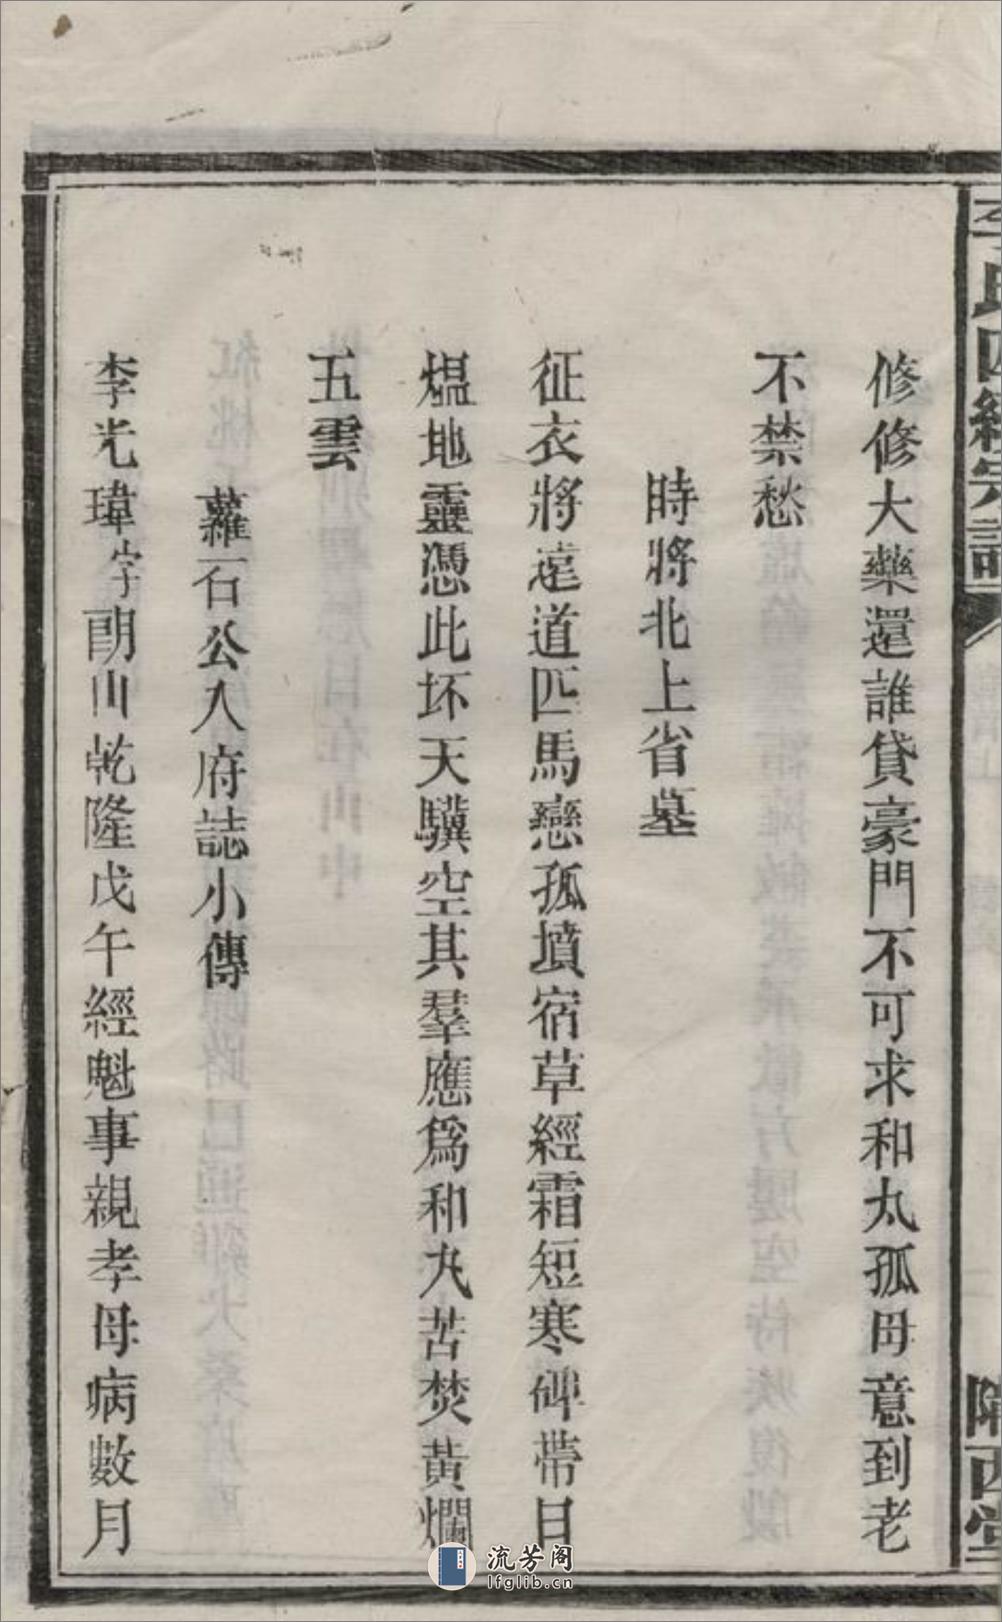 李氏四續宗譜
隴西堂
修修大藥還誰貸豪門不可求和丸孤毋意到老
不禁愁
時將北上省墓
征衣將遠道匹馬戀孤墳宿草經霜短寒碑帶日
熅地靈憑此坏天驥空其羣應爲和丸苦焚黃爛
五雲
蘿石公入府誌小傳
李光瑋字朗山乾隆戊午經魁事親孝母病數月
流芳阁
lfglib.cn